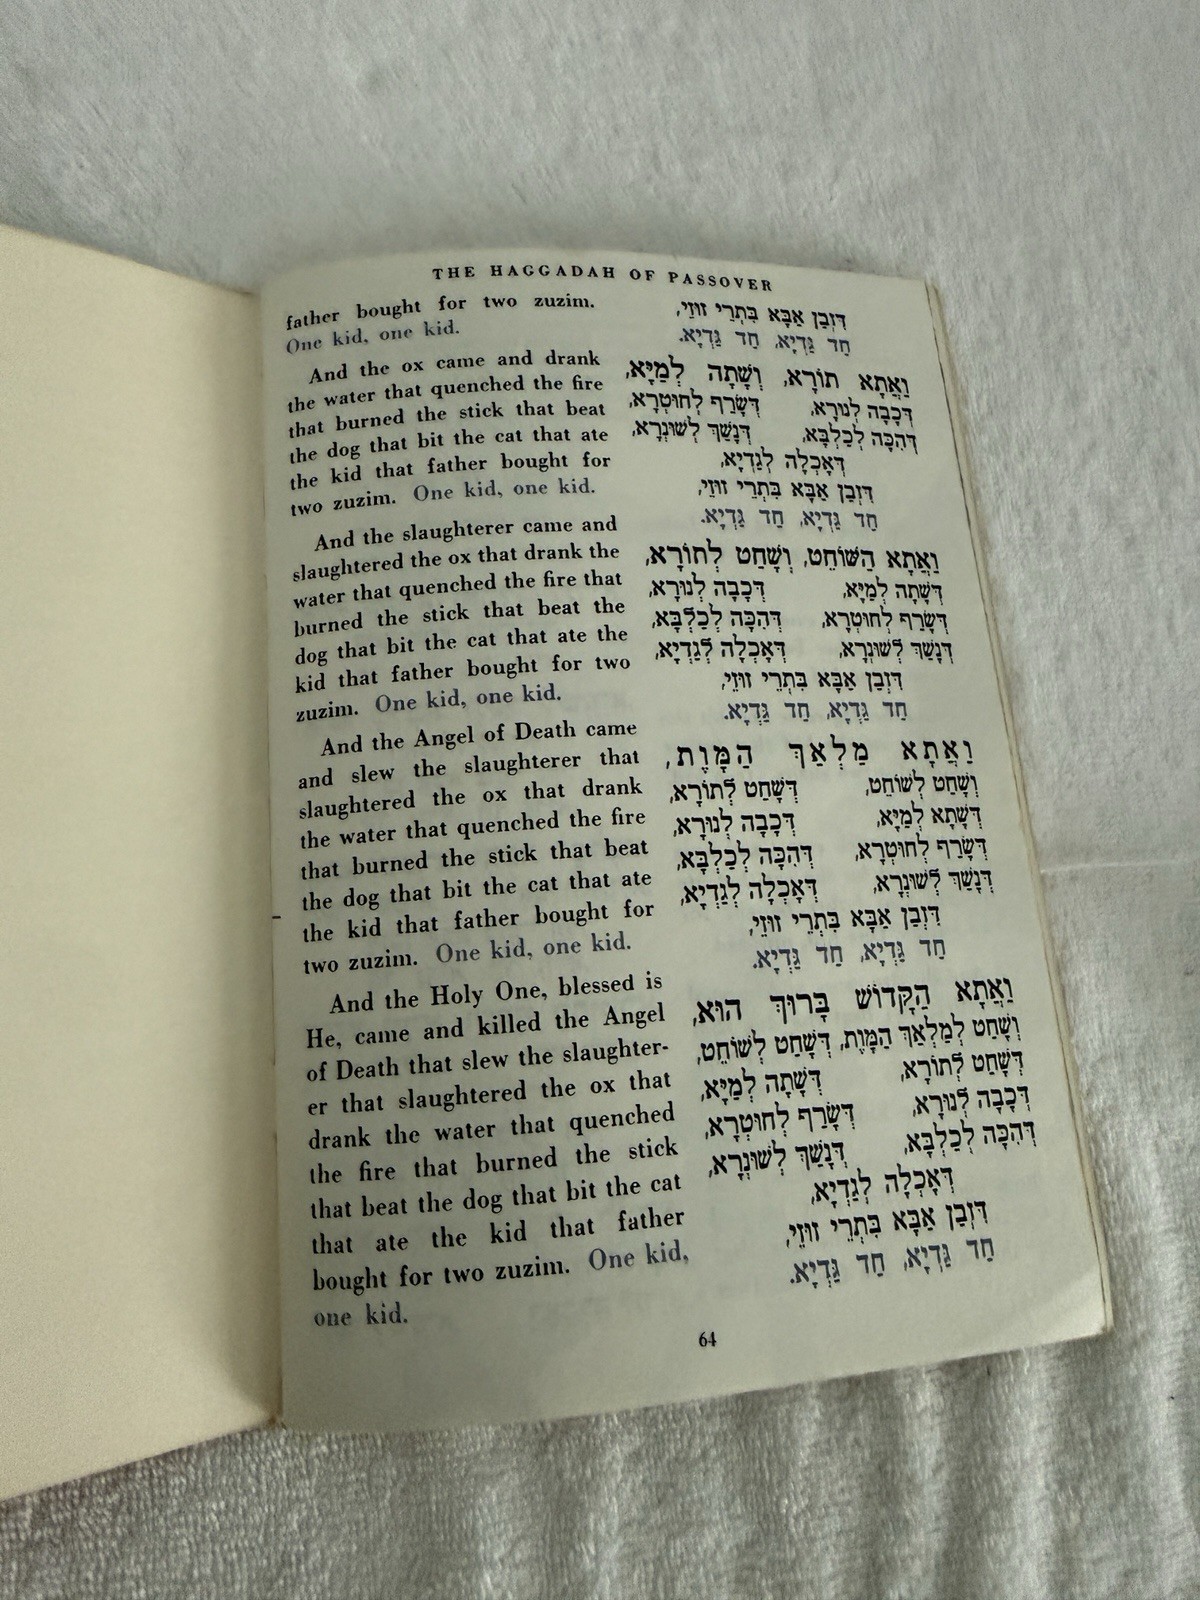 THE HAGGADAH OF PASSOVER
father bought for two zuzim.
One kid, one kid.
And the ox came and drank
the water that quenched the fire
that burned the stick that beat
the dog that bit the cat that ate
the kid that father bought for
two zuzim. One kid, one kid.
And the slaughterer came and
slaughtered the ox that drank the
water that quenched the fire that
burned the stick that beat the
dog that bit the cat that ate the
kid that father bought for two
zuzim. One kid, one kid.
And the Angel of Death came
and slew the slaughterer that
slaughtered the ox that drank
the water that quenched the fire
that burned the stick that beat
the dog that bit the cat that ate
the kid that father bought for
two zuzim. One kid, one kid.
And the Holy One, blessed is
He, came and killed the Angel
of Death that slew the slaughter-
er that slaughtered the ox that
drank the water that quenched
the fire that burned the stick
that beat the dog that bit the cat
that ate the kid that father
bought for two zuzim. One kid,
one kid.
דִּזְבַן אַבָּא בִּתְרֵי זוּזֵי,
חַד גַּדְיָא, חַד גַּדְיָא.
וַאֲתָא תוֹרָא, וְשָׁתָה לְמַיָּא,
דְּכָבָה לְנוּרָא, דְּשָׂרַף לְחוּטְרָא,
דְּהִכָּה לְכַלְבָּא, דְּנָשַׁךְ לְשׁוּנְרָא,
דְּאָכְלָה לְגַדְיָא,
דִּזְבַן אַבָּא בִּתְרֵי זוּזֵי,
חַד גַּדְיָא, חַד גַּדְיָא.
וַאֲתָא הַשּׁוֹחֵט, וְשָׁחַט לְתוֹרָא,
דְּשָׁתָה לְמַיָּא, דְּכָבָה לְנוּרָא,
דְּשָׂרַף לְחוּטְרָא, דְּהִכָּה לְכַלְבָּא,
דְּנָשַׁךְ לְשׁוּנְרָא, דְּאָכְלָה לְגַדְיָא,
דִּזְבַן אַבָּא בִּתְרֵי זוּזֵי,
חַד גַּדְיָא, חַד גַּדְיָא.
וַאֲתָא מַלְאַךְ הַמָּוֶת,
וְשָׁחַט לְשׁוֹחֵט, דְּשָׁחַט לְתוֹרָא,
דְּשָׁתָא לְמַיָּא, דְּכָבָה לְנוּרָא,
דְּשָׂרַף לְחוּטְרָא, דְּהִכָּה לְכַלְבָּא,
דְּנָשַׁךְ לְשׁוּנְרָא, דְּאָכְלָה לְגַדְיָא,
דִּזְבַן אַבָּא בִּתְרֵי זוּזֵי,
חַד גַּדְיָא, חַד גַּדְיָא.
וַאֲתָא הַקָּדוֹשׁ בָּרוּךְ הוּא,
וְשָׁחַט לְמַלְאַךְ הַמָּוֶת, דְּשָׁחַט לְשׁוֹחֵט,
דְּשָׁחַט לְתוֹרָא, דְּשָׁתָה לְמַיָּא,
דְּכָבָה לְנוּרָא, דְּשָׂרַף לְחוּטְרָא,
דְּהִכָּה לְכַלְבָּא, דְּנָשַׁךְ לְשׁוּנְרָא,
דְּאָכְלָה לְגַדְיָא,
דִּזְבַן אַבָּא בִּתְרֵי זוּזֵי,
חַד גַּדְיָא, חַד גַּדְיָא.
64